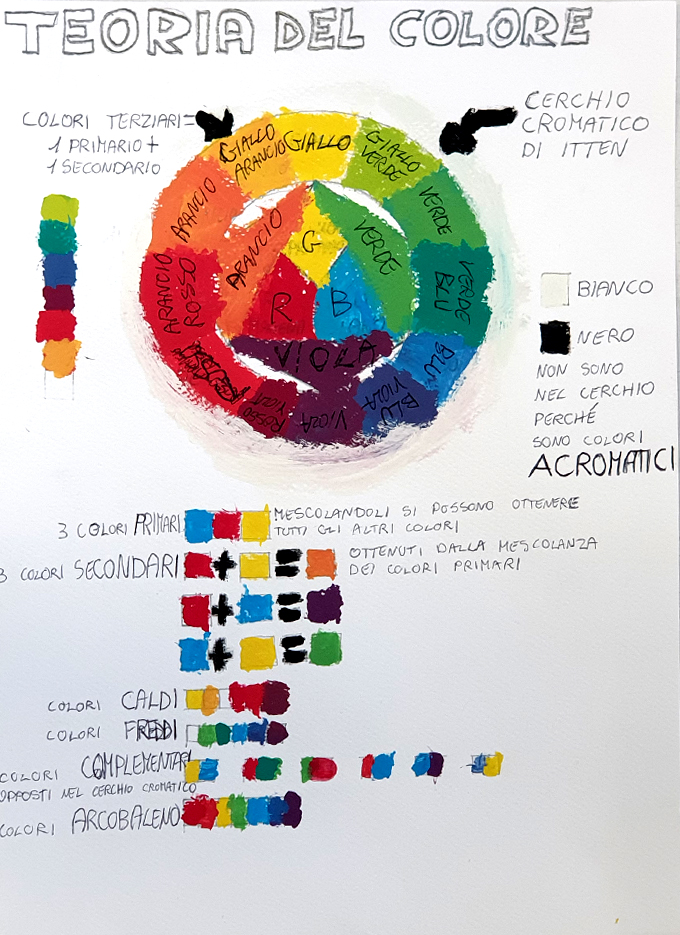 TEORIA DEL COLORE
COLORI TERZIARI=
1 PRIMARIO +
1 SECONDARIO
CERCHIO
CROMATICO
DI ITTEN
GIALLO
ARANCIO
GIALLO
GIALLO
VERDE
ARANCIO
VERDE
ARANCIO
G
VERDE
ARANCIO
ROSSO
R
B
VERDE
BLU
VIOLA
BLU
ROSSO
VIOLA
VIOLA
BLU
VIOLA
BIANCO
NERO
NON SONO
NEL CERCHIO
PERCHÉ
SONO COLORI
ACROMATICI
3 COLORI PRIMARI
MESCOLANDOLI SI POSSONO OTTENERE
TUTTI GLI ALTRI COLORI
3 COLORI SECONDARI + =
OTTENUTI DALLA MESCOLANZA
DEI COLORI PRIMARI
+ =
+ =
COLORI CALDI
COLORI FREDDI
COLORI COMPLEMENTARI
OPPOSTI NEL CERCHIO CROMATICO
COLORI ARCOBALENO